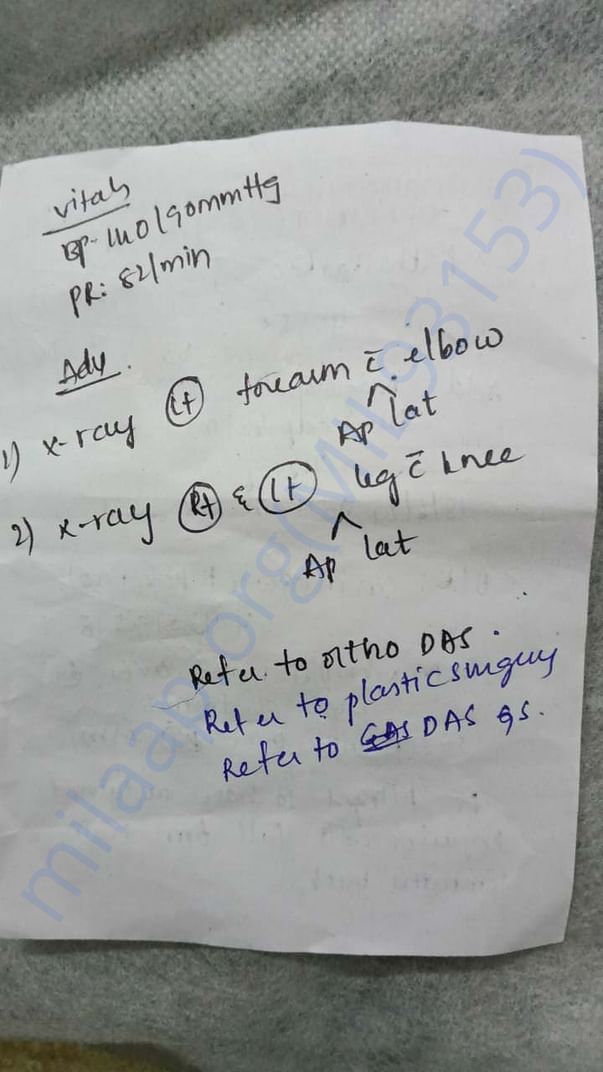 vitals
BP- 140/90mmHg
PR: 82/min
Adv.
1) x-ray Lt forearm c̄ elbow
AP lat
2) x-ray Rt & Lt leg c̄ knee
AP lat
Refer to ortho DAS.
Refer to plastic surgery
Refer to DAS GS.
milaap.org(MIL93153)